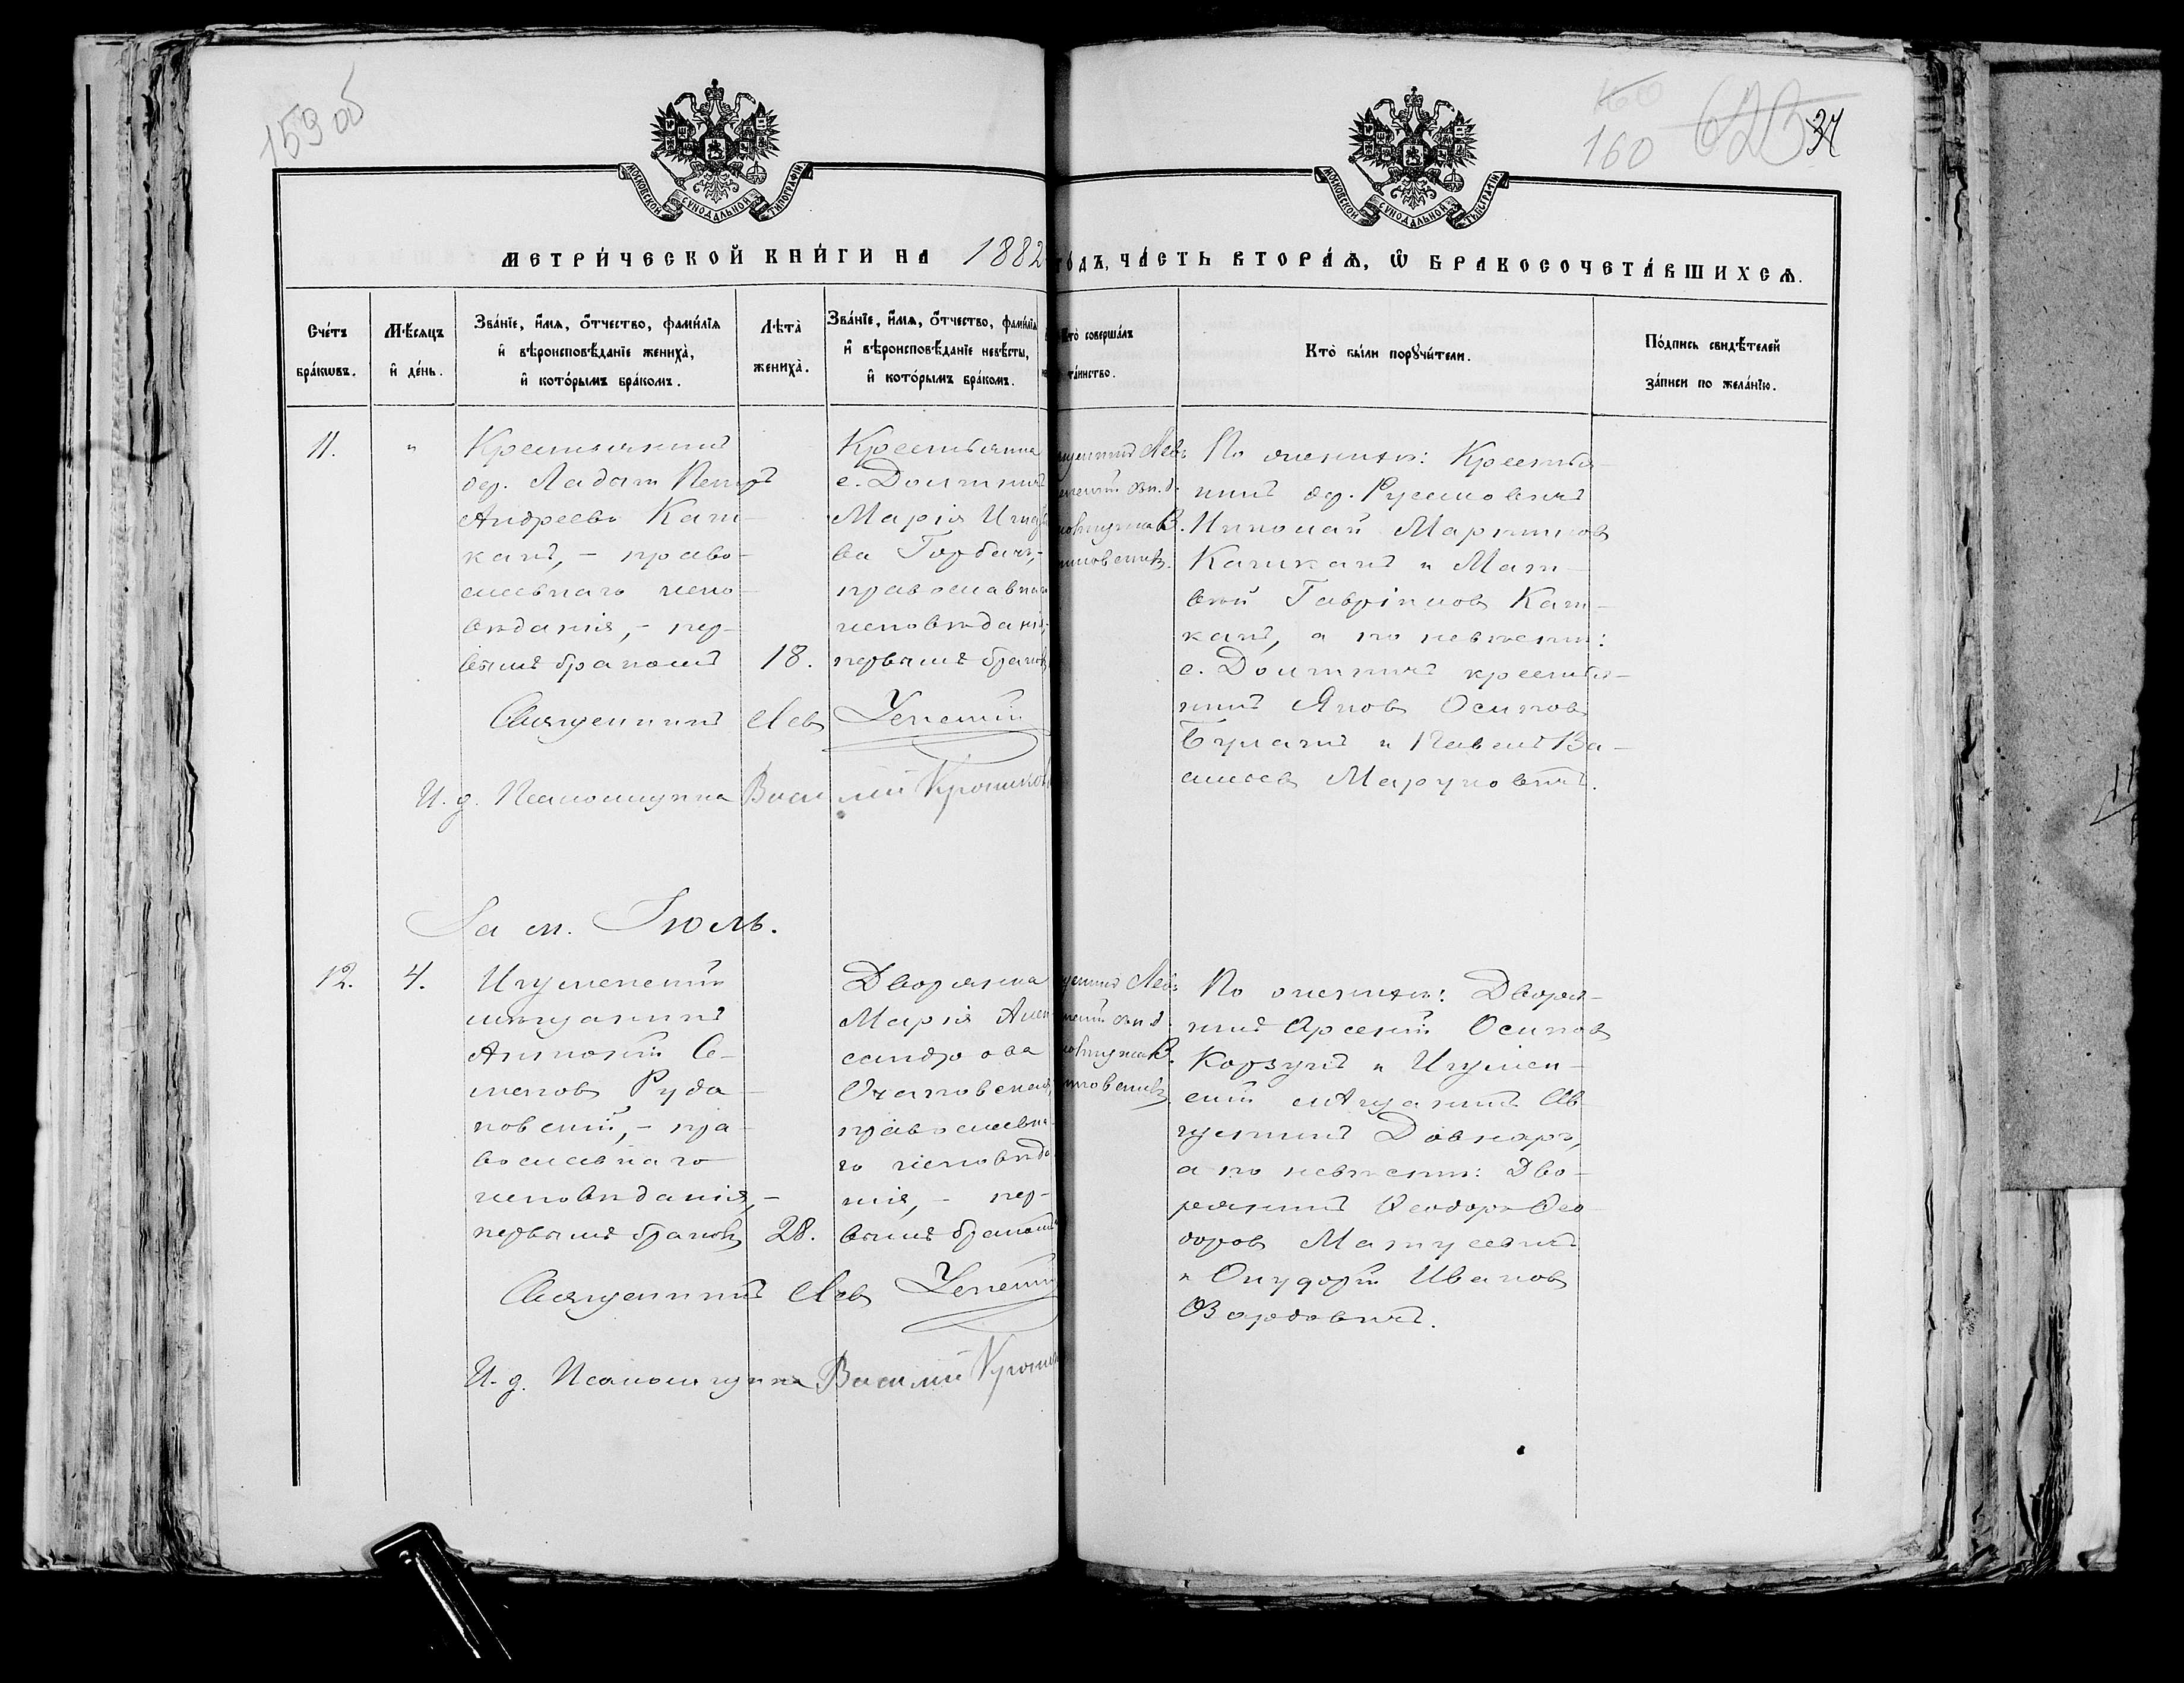 159 об
160
160
623
34
МОСКОВСКОЙ СУНОДАЛЬНОЙ ТИПОГРАФІИ
МОСКОВСКОЙ СУНОДАЛЬНОЙ ТИПОГРАФІИ
МЕТРИ́ЧЕСКОЙ КНИ́ГИ НА 1882 ГО́ДЪ, ЧА́СТЬ ВТОРА́Ѧ, Ѡ БРАКОСОЧЕТА́ВШИХСѦ.
Сче́тъ бра́кωвъ.
Мѣ́сяцъ и҆ де́нь.
Зва́нїе, и҆́мѧ, ѻ҆́тчество, фами́лїѧ
и҆ вѣроисповѣ́данїе жениха̀,
и҆ кото́рымъ бра́комъ.
Лѣта̀
жениха̀.
Зва́нїе, и҆́мѧ, ѻ҆́тчество, фами́лїѧ
и҆ вѣроисповѣ́данїе невѣ́сты,
и҆ кото́рымъ бра́комъ.
Кто̀ соверша́лъ
та́инство.
Кто̀ бы́ли порꙋчи́тели.
По́дпись свидѣ́телей
за́писи по жела́нїю.
11.
"
Крестьянинъ
дер. Ладати Петръ
Андреевъ Каш-
канъ, - право-
славнаго испо-
вѣданія, - пер-
вымъ бракомъ
18.
Крестьянка
с. Дмитричъ
Марія Игнать
ва Горбачъ, -
православнаго
исповѣданія,
первымъ бракомъ
щенникъ Левъ
енскій и и. д.
ломщика В.
шковскій.
По женихѣ: Крестья-
нинъ дер. Русиновичъ
Николай Маркиновъ
Кашканъ и Мат-
вѣй Гавріиловъ Каш-
канъ, а по невѣстѣ:
с. Дмитричъ крестья-
нинъ Яковъ Осиповъ
Бураки и Павелъ Ва-
сильевъ Маруновичъ.
Священникъ Левъ Успенскій
И. д. Псаломщика Василій
За м. Іюль.
12.
4.
Игуменскій
мѣщанинъ
Антоній Се-
меновъ Руда-
ковскій, - пра-
вославнаго
исповѣданія, -
первымъ бракомъ
28.
Дворянка
Марія Алек-
сандрова
Очаповская,
православна-
го исповѣда-
нія, - пер-
вымъ бракомъ
щенникъ Левъ
енскій и и. д.
ломщика В.
шковскій
По женихѣ: Дворя-
нинъ Арсеній Осиповъ
Корзунъ и Игумен-
скій мѣщанинъ Ав-
густинъ Довнаръ,
а по невѣстѣ: Дво-
рянинъ Ѳеодоръ Ѳео-
доровъ Матусевичъ
и Онуфрій Ивановъ
Вордовичъ.
Священникъ Левъ Успенскій
И. д. Псаломщика Василій